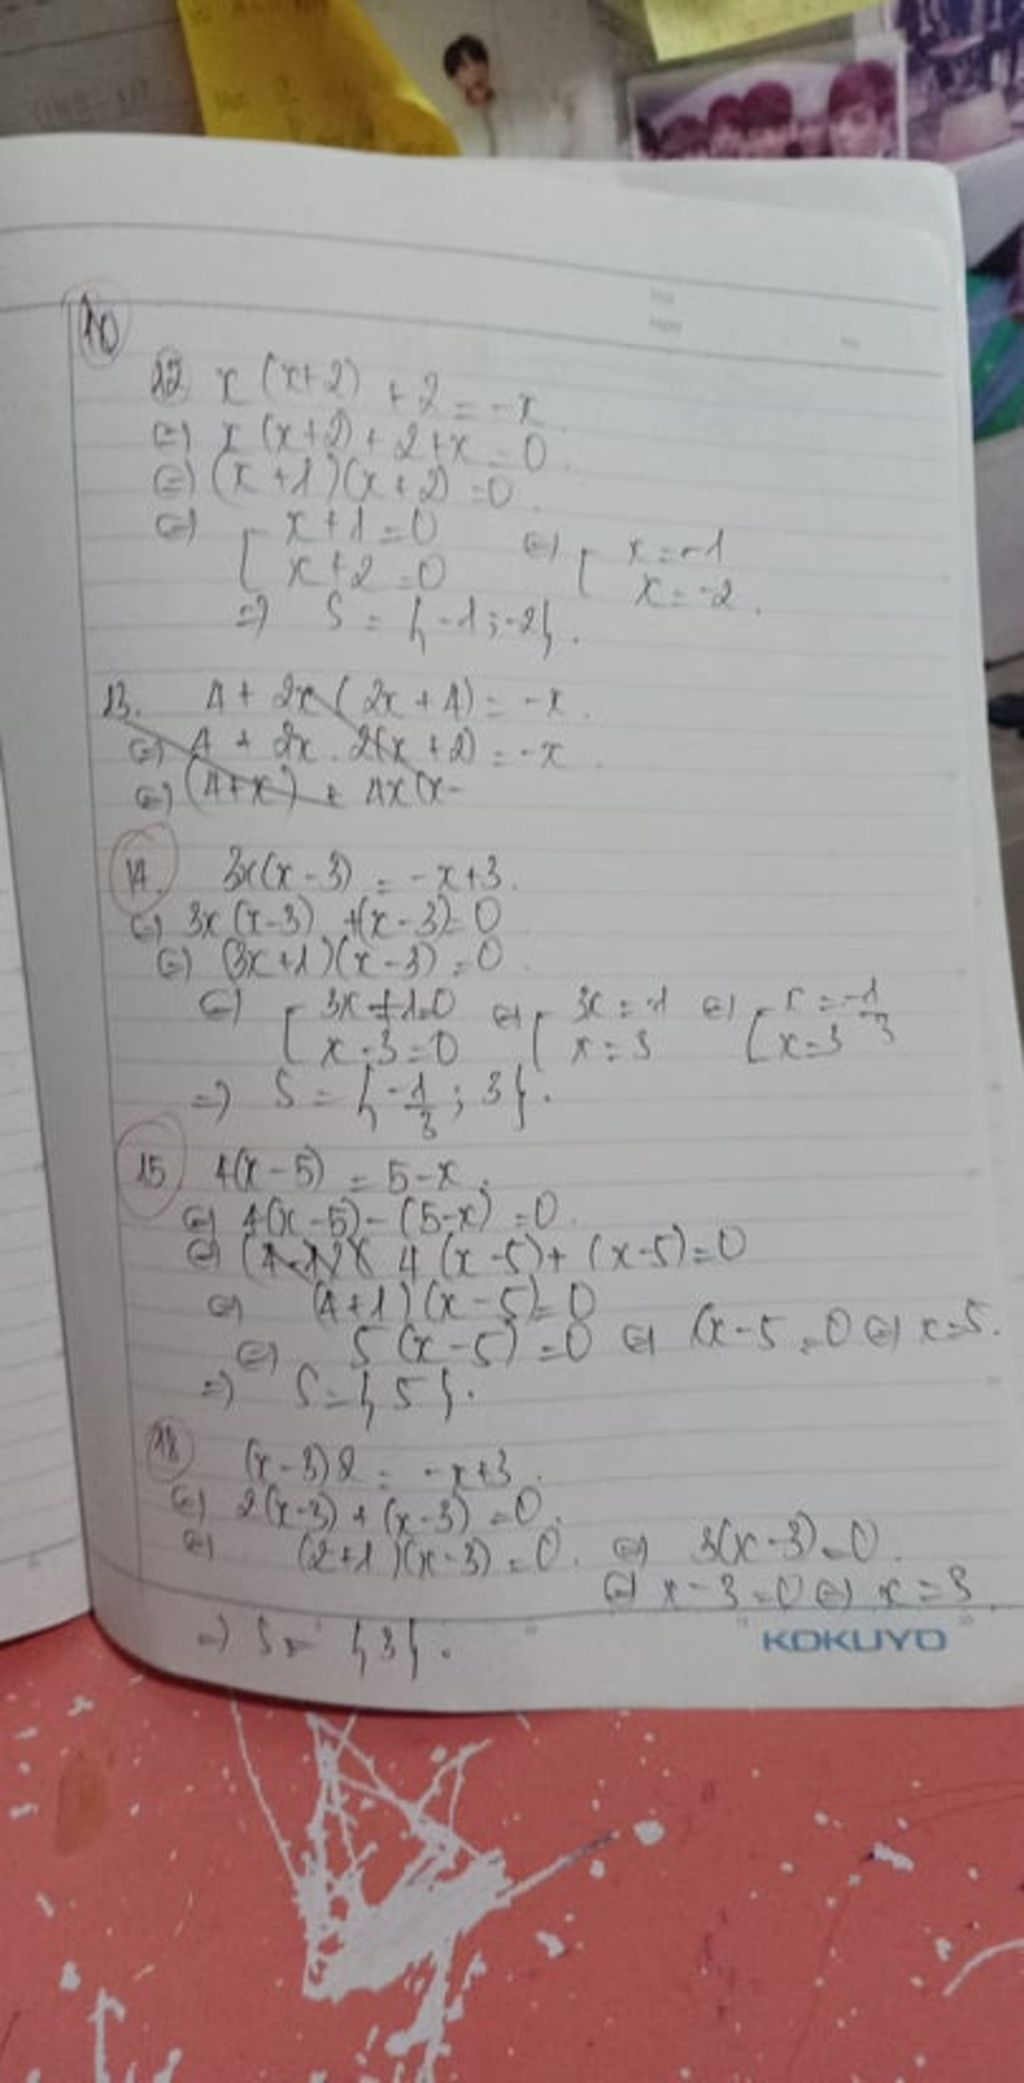 10
12 x (x+2) + 2 = -x
(=) x (x+2) + 2 + x = 0.
(=) (x+1)(x+2) = 0.
(=) [ x+1 = 0 (=) [ x = -1
x+2 = 0 x = -2.
=) S = {-1; -2}.
13. 4 + 2x (2x + 4) = -x.
(=) 4 + 2x . 2(x + 2) = -x.
(=) (4+x) + 4x (x-
14. 3x(x-3) = -x+3.
(=) 3x (x-3) +(x-3)=0
(=) (3x+1)(x-3) = 0.
(=) [ 3x+1=0 (=) [ 3x = -1 (=) [ x = -1/3
x-3=0 x = 3 x=3
=) S = {-1/3; 3}.
15 4(x-5) = 5-x.
(=) 4(x-5) - (5-x) = 0.
(=) 4 (x-5)+ (x-5)=0
(=) (4+1)(x-5)=0
(=) 5 (x-5) = 0 (=) (x-5 = 0 (=) x=5.
=) S={5}.
18 (x-3)2 = -x+3.
(=) 2(x-3) + (x-3) = 0.
(=) (2+1)(x-3) = 0. (=) 3(x-3)=0.
(=) x-3=0 (=) x = 3
=) S= {3}.
KOKUYO